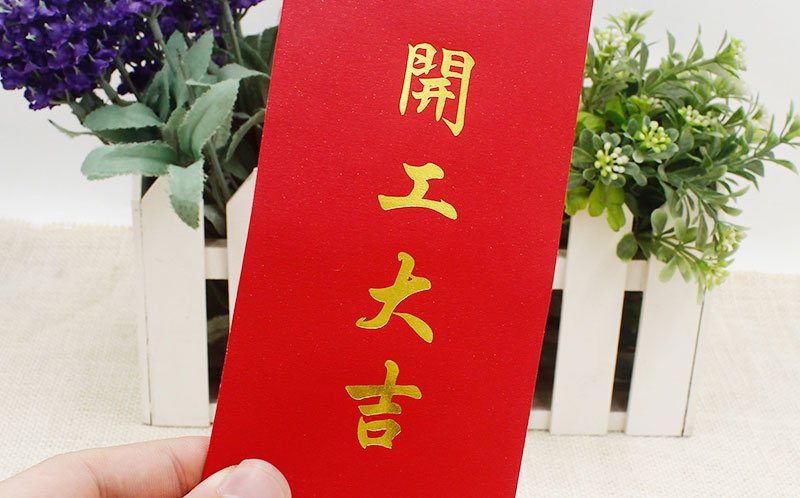 開工大吉